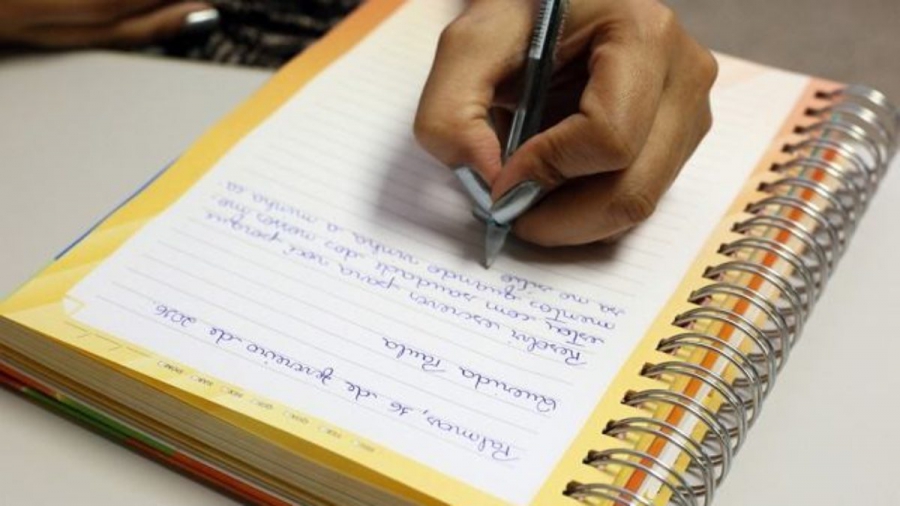 Palmas, 16 de fevereiro de 2016.
Querida Paula
Resolvi escrever para você porque
estou com saudade dos nossos mo-
mentos quando vinha a minha ca
sa no sítio